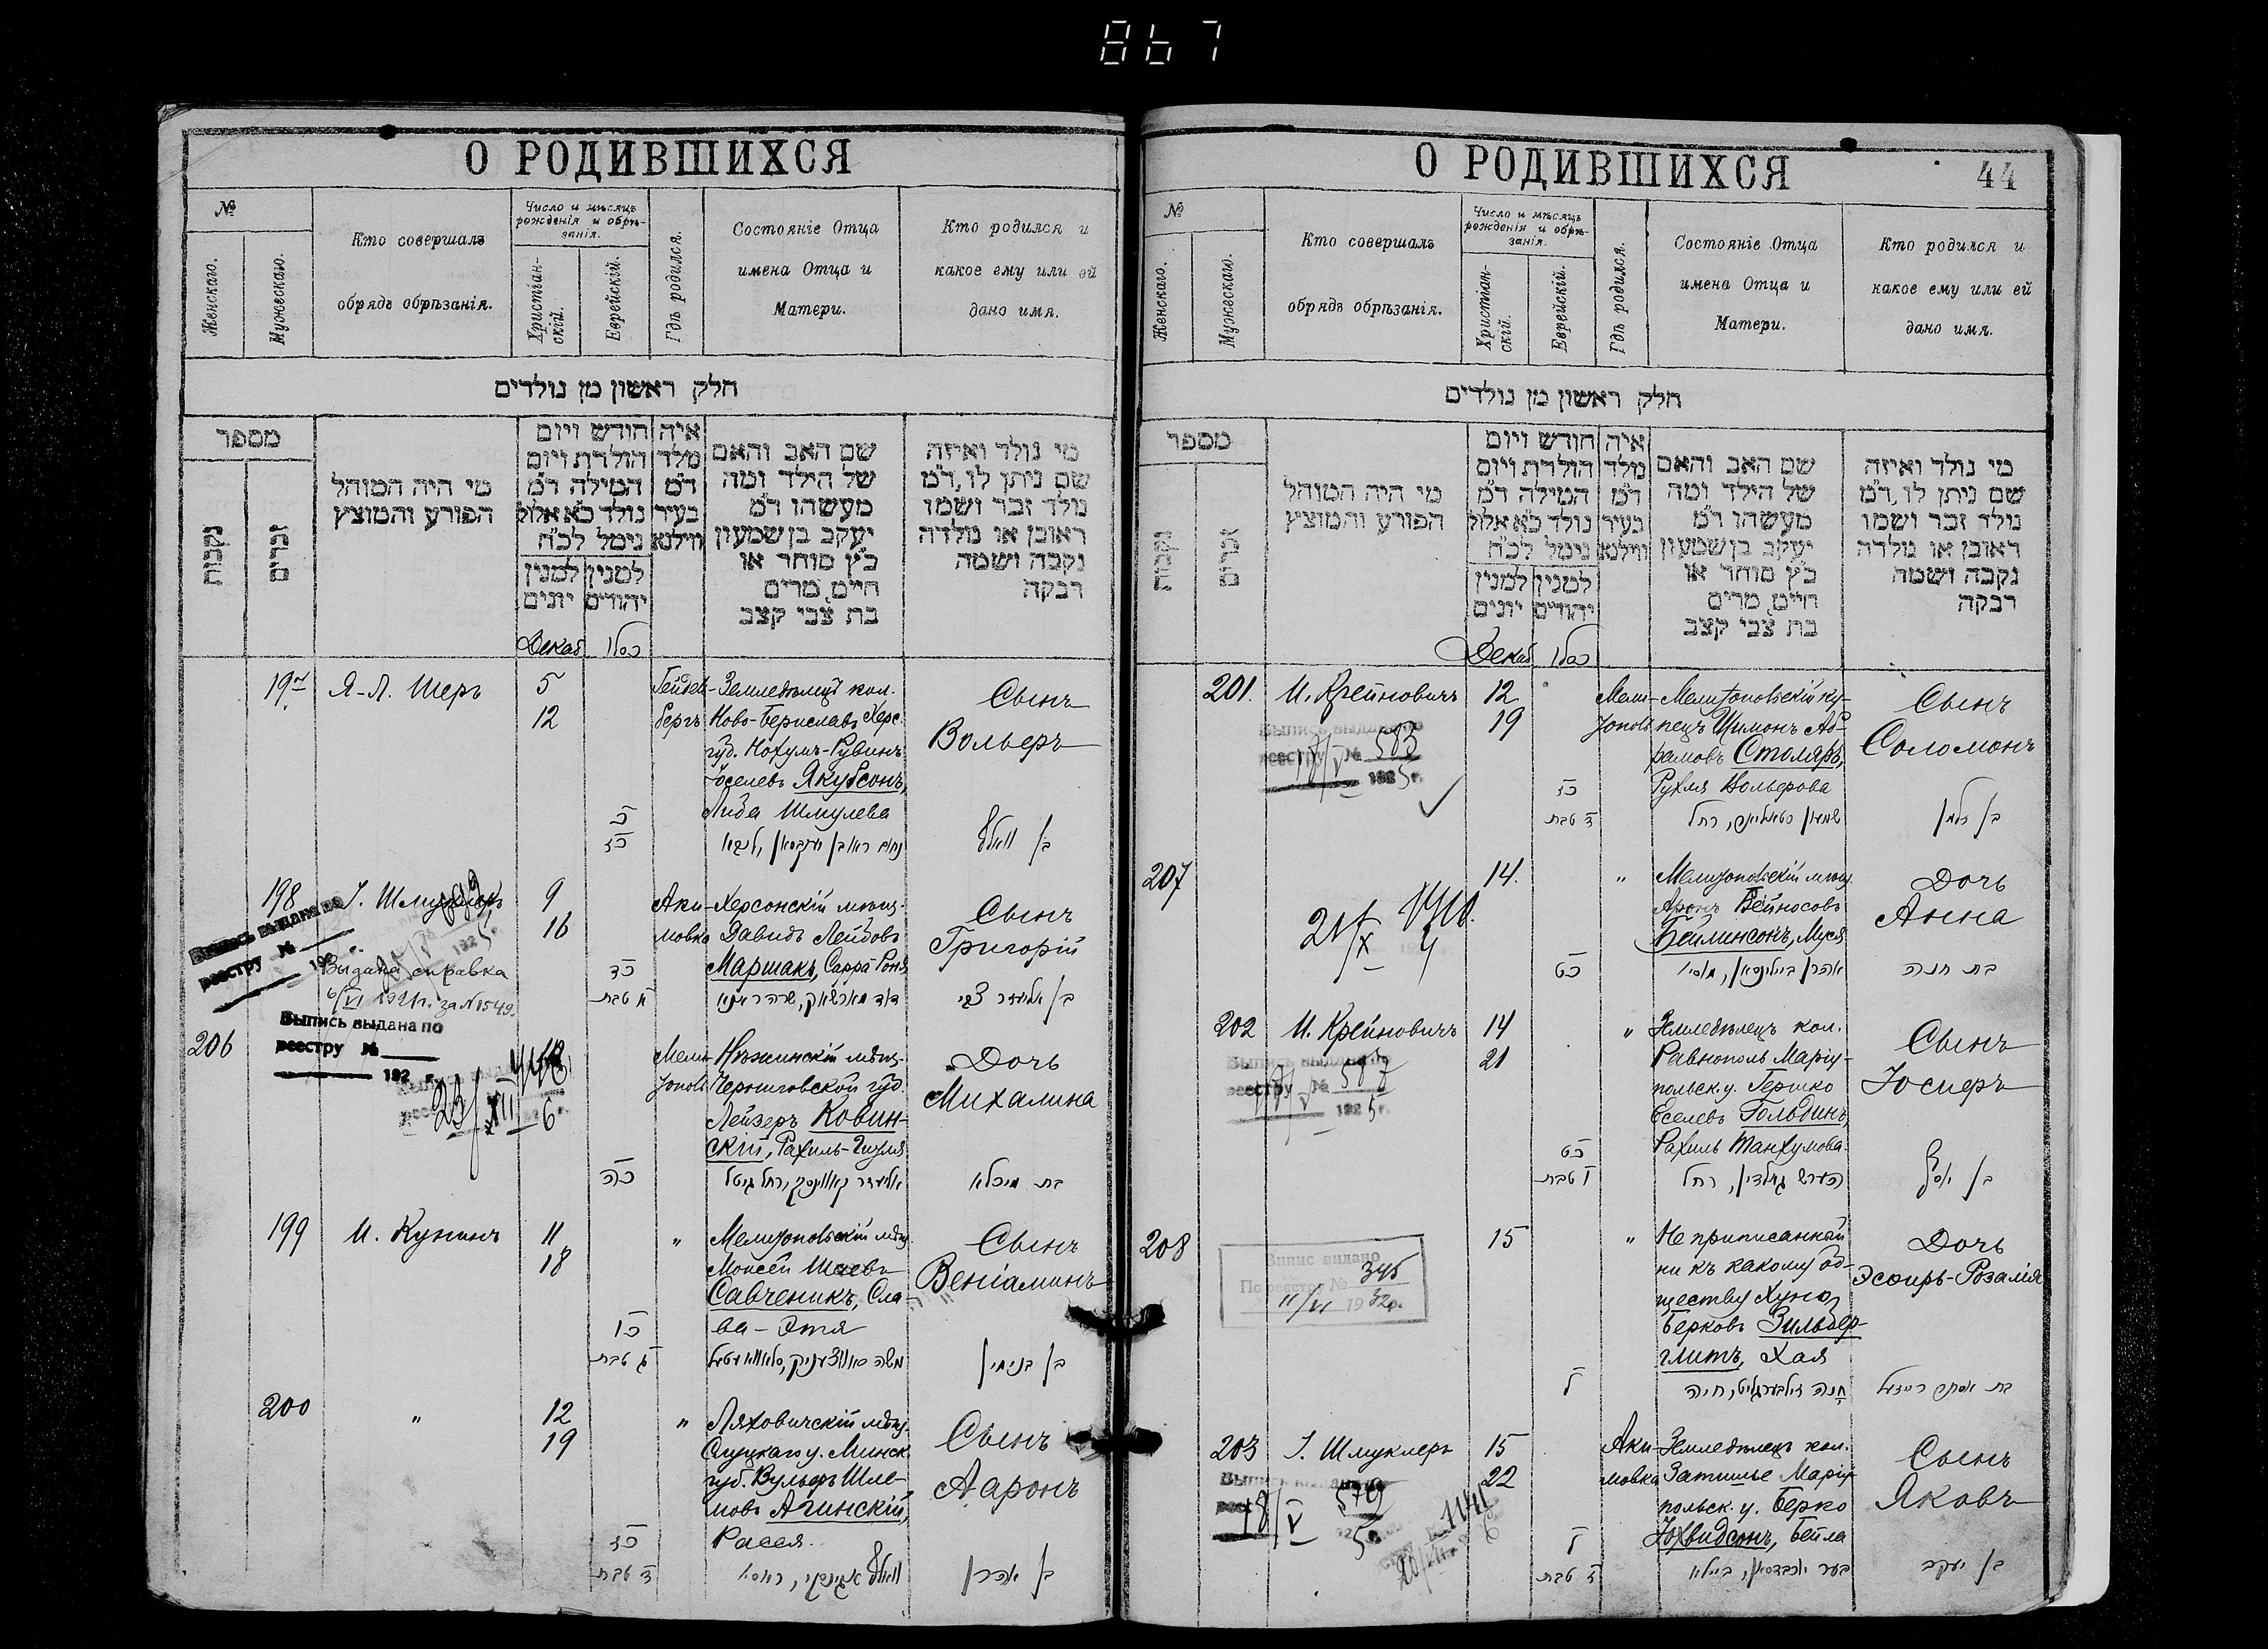 867
О РОДИВШИХСЯ
№
Женскаго.
Мужескаго.
Кто совершалъ
обрядъ обрѣзанія.
Число и мѣсяцъ
рожденія и обрѣ-
занія.
Христіан-
скій.
Еврейскій.
Гдѣ родился.
Состояніе Отца
имена Отца и
Матери.
Кто родился и
какое ему или ей
дано имя.
חלק ראשון מן נולדים
מספר
נקבות
זכרים
מי היה המוהל
הפורע והמוצץ
חודש ויום
הולדת ויום
המילה ד״מ
נולד כ״א אלול
נימל לכ״ח
למנין למנין
יהודים יונים
איה
מלד
ד״מ
בעיר
ווילנא
שם האב והאם
של הילד ומה
מעשהו ד״מ
יעקב בן שמעון
כ״ץ סוחר או
חיים, מרים
בת צבי קצב
מי נולד ואיזה
שם ניתן לו, ד״מ
נולד זכר ושמו
ראובן או נולדה
נקבה ושמה
רבקה
Декаб. כסלו
197 Я-Л. Шеръ
5
12
Гейдель-
бергъ
Земледѣлецъ кол.
Ново-Бериславъ Херс.
губ. Нохумъ-Рувинъ
Іоселевъ Якубсонъ,
Лида Шмулева
Сынъ
Вольфъ
כ
כז
בן וואלף
198 І. Шмуклеръ
9
16
Аки-
мовка
Херсонскій мѣщ.
Давидъ Лейбовъ
Маршакъ, Сарра Роня
Сынъ
Григорій
כד
דוד מארשאק, שרה
Выпись выдана по
реестру №
192 г.
Выдана справка
6/VI 1921г. за N1549.
206
Выпись выдана по
реестру №
192 г.
23/XII 6
Мели-
тополь
Нѣжинскій мѣщ.
Черниговской губ.
Лейзеръ Ковин-
скій, Рахиль-Гитля
Дочь
Михалина
כה
בת מיכלא
199 И. Кунинъ
11
18
"
Мелитопольскій мѣщ.
Моисей Шаевъ
Савченикъ, Сла-
ва-Этя
Сынъ
Веніаминъ
כו
ג טבת
בן בנימין
200 "
12
19
"
Ляховичскій мѣщ.
Слуцкаго у. Минск.
губ. Вульфъ Шле-
мовъ Агинскій,
Рася.
Сынъ
Ааронъ
כז
ד טבת
בן אהרן
О РОДИВШИХСЯ
44
№
Женскаго.
Мужескаго.
Кто совершалъ
обрядъ обрѣзанія.
Число и мѣсяцъ
рожденія и обрѣ-
занія.
Христіан-
скій.
Еврейскій.
Гдѣ родился.
Состояніе Отца
имена Отца и
Матери.
Кто родился и
какое ему или ей
дано имя.
חלק ראשון מן נולדים
מספר
נקבות
זכרים
מי היה המוהל
הפורע והמוצץ
חודש ויום
הולדת ויום
המילה ד״מ
נולד כ״א אלול
נימל לכ״ח
למנין למנין
יהודים יונים
איה
מלד
ד״מ
בעיר
ווילנא
שם האב והאם
של הילד ומה
מעשהו ד״מ
יעקב בן שמעון
כ״ץ סוחר או
חיים, מרים
בת צבי קצב
מי נולד ואיזה
שם ניתן לו, ד״מ
נולד זכר ושמו
ראובן או נולדה
נקבה ושמה
רבקה
Декаб. כסלו
201. И. Крейновичъ
12
19
Мели-
тополь
Мелитопольскій ку-
пецъ Шимонъ Аб-
рамовъ Столяръ,
Рухля Вольфова
Сынъ
Соломонъ
Выпись выдана по
реестру № 583
18/V 1925 г.
כז
ד טבת
207
14.
"
Мелитопольскій мѣщ.
Аронъ Вейносовъ
Бейлинсонъ, Муся
Дочь
Анна
כט
בת חנה
202 И. Крейновичъ
14
21
"
Земледѣлецъ кол.
Равнополь Маріу-
польск. у. Гершко
Еселевъ Гольдинъ,
Рахиль Танхумова.
Сынъ
Іосифъ
Выпись выдана по
реестру №
1925 г.
כט
ו טבת
בן יוסף
208
15
"
Не приписанный
ни къ какому об-
ществу Хуна
Берковъ Зильбер-
глитъ, Хая
Дочь
Эсфирь-Розалія
Випис видано
По реестру № 345
11/VI 1932р.
ל
203 І. Шмуклеръ
15
22
Аки-
мовка
Земледѣлецъ кол.
Затишье Маріу-
польск. у. Берко
Юхвидсонъ, Бейла
Сынъ
Яковъ
18/V 579
ל
ז טבת
בן יעקב